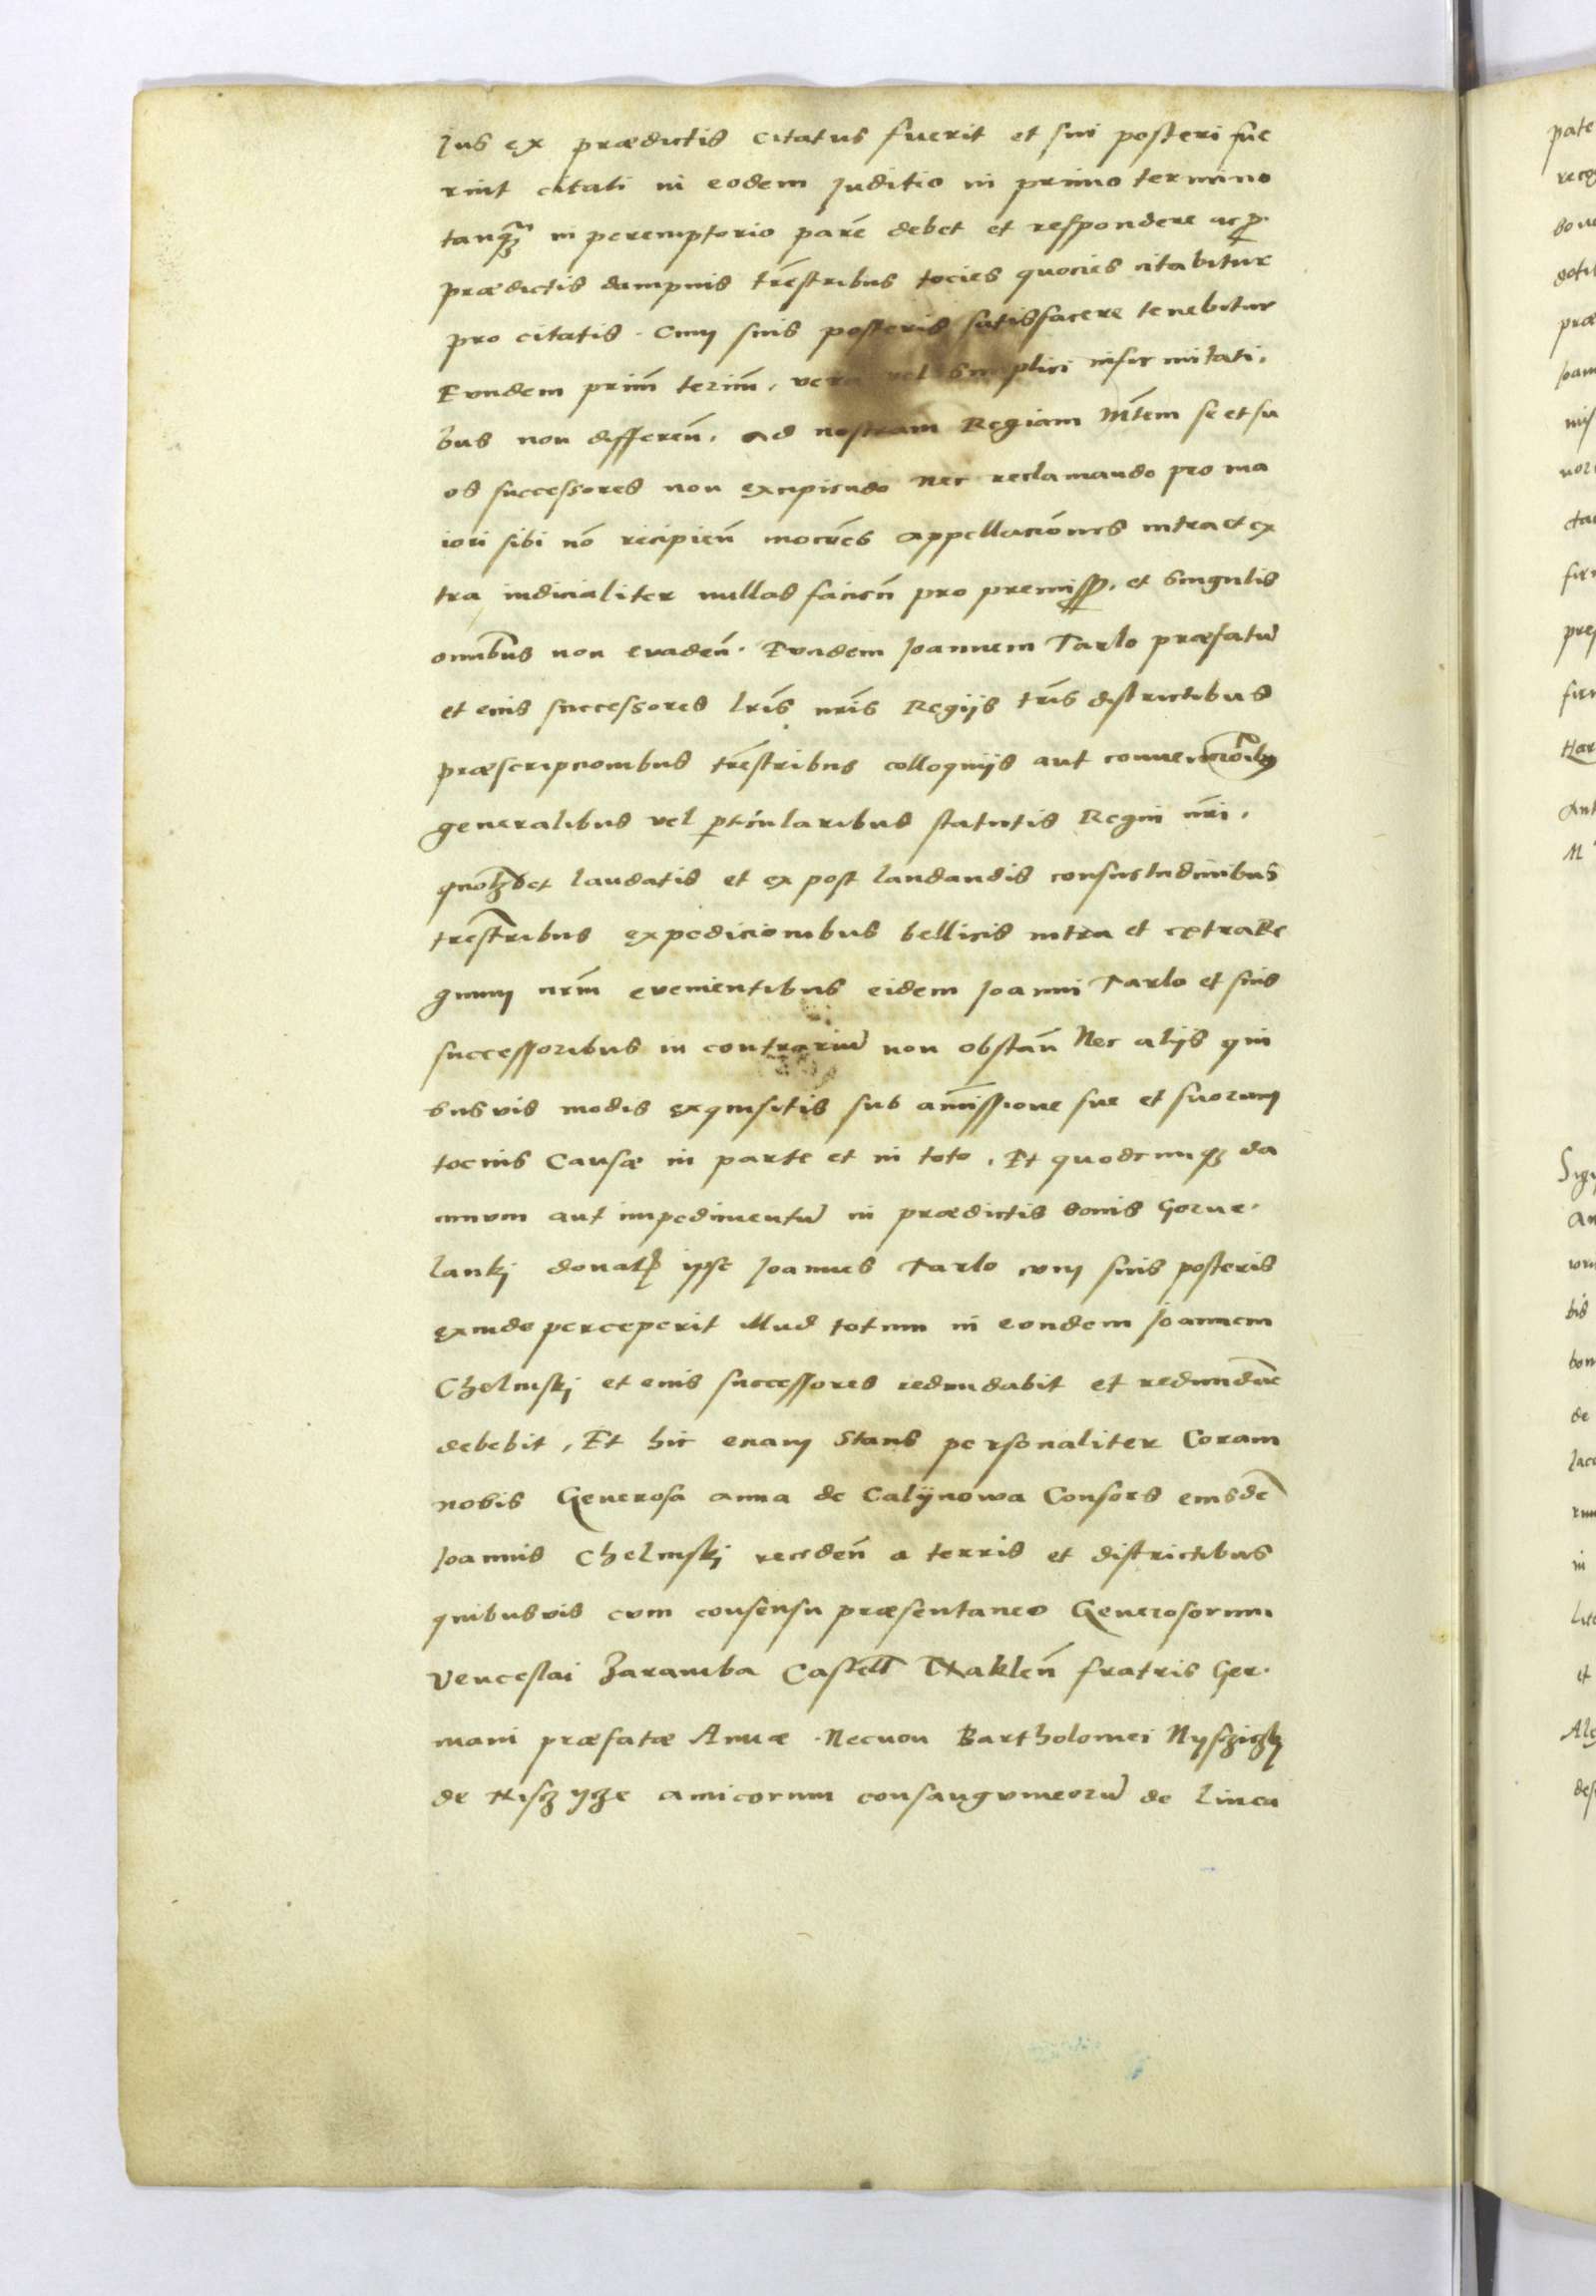 jus ex prædictis citatus fuerit et sui posteri fue
rint citati in eodem juditio in primo termino
tanq̃ȝ in peremptorio parẽ debet et respondere ac ꝓ
prædictis dampnis tr̃estribus tocies quocies citabitur
pro citatis. Cum suis posteris satisfacere tenebitur
Eundem prim̃ terim̃, vera vel simplici infirmitati,
bus non differeñ, ad nostram Regiam M̃tem se et su
os successores non excipiendo nec reclamando pro ma
iori sibi nõ recipieñ appellaciões intra et ex
tra iudicialiter nullas facieñ pro premiss, et singulis
omĩbus non evadeñ. Eundem Joannem Tarlo præfatũ
et eius successores lr̃is nr̃is Regijs tr̃is districtibus
præscripcionibus tr̃estribus colloquijs aut
generalibus vel ꝑticularibus statutis Regni nr̃i,
quolȝbet laudatis et ex post laudandis consuetudinibus
tr̃estribus expedicionibus bellicis intra et extra Re
gnum nrm̃ evenientibus eidem Joanni Tarlo et suis
successoribus in contrariũ non obstañ Nec alijs qui
busvis modis exquisitis sub amissione sue et suorum
tocius Causæ in parte et in toto, Et quodcunqȝ da
mnum aut impedimentũ in prædictis bonis Gorne,
lanki donatꝭ ipse Joannes Tarlo cum suis posteris
exinde perceperit illud totum in eundem Joannem
Chelmskj et eius successores redundabit et redundar̃e
debebit, Et hic eciam stans personaliter Coram
nobis Generosa anna de Calijnowa Consors eiusdẽ
Joannis Chelmskj recedeñ a terris et districtibus
quibusvis cum consensu præsentaneo Generosorum
Venceslai Zaramba Castell̃ Nakleñ fratris Ger,
mani præfatæ Annæ. Necnon Bartholomei
de amicorum consanguineorũ de linea